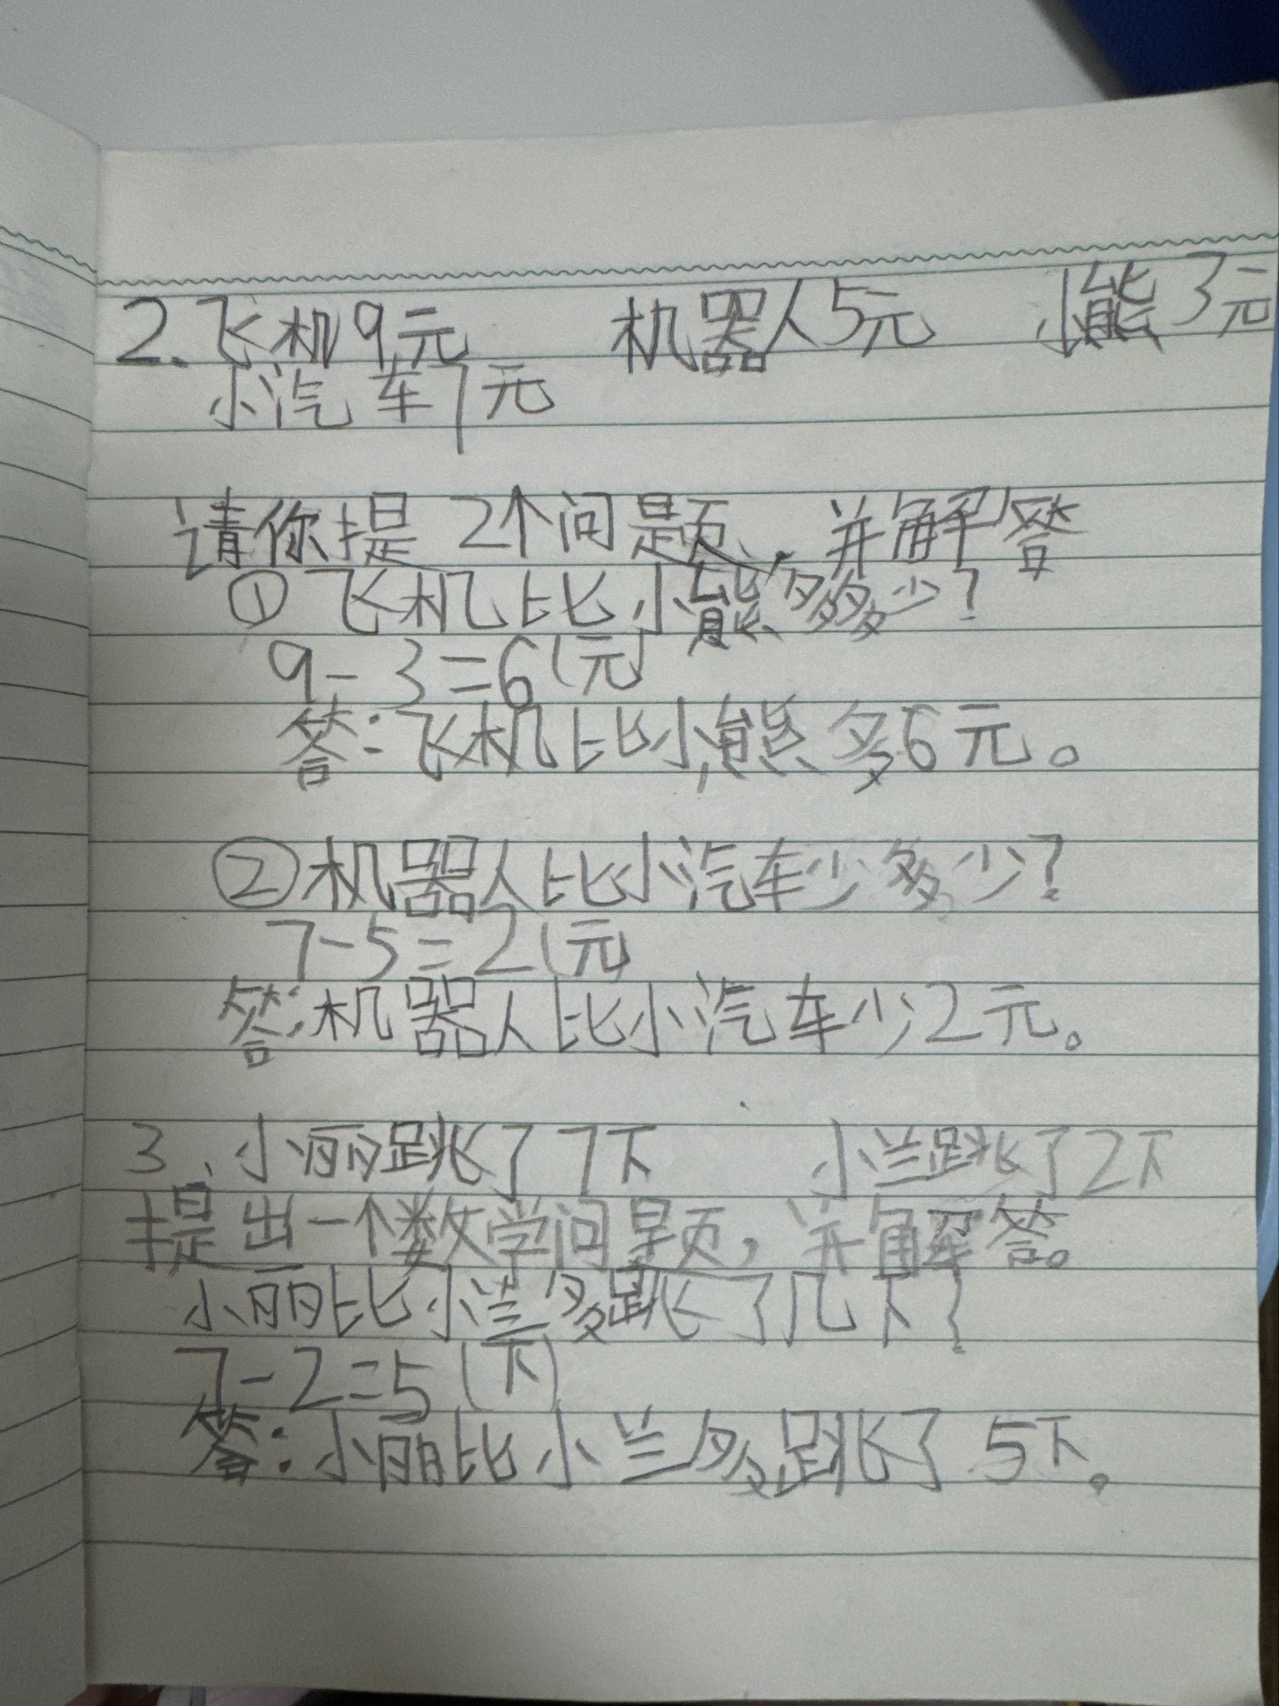 2、飞机9元 机器人5元 小熊3元
小汽车7元
请你提2个问题，并解答
①飞机比小熊多多少？
9-3=6(元)
答：飞机比小熊多6元。
②机器人比小汽车少多少？
7-5=2(元
答：机器人比小汽车少2元。
3、小丽跳了7下 小兰跳了2下
提出一个数学问题，并解答。
小丽比小兰多跳了几下？
7-2=5(下)
答：小丽比小兰多跳了5下。